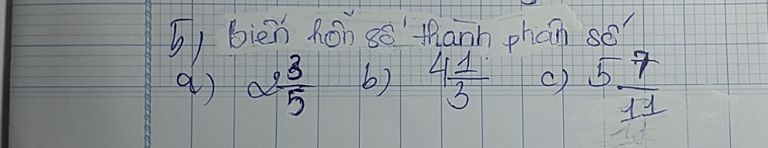 5, biến hỗn số thành phân số
a) 2 3/5 b) 4 1/3 c) 5 7/11